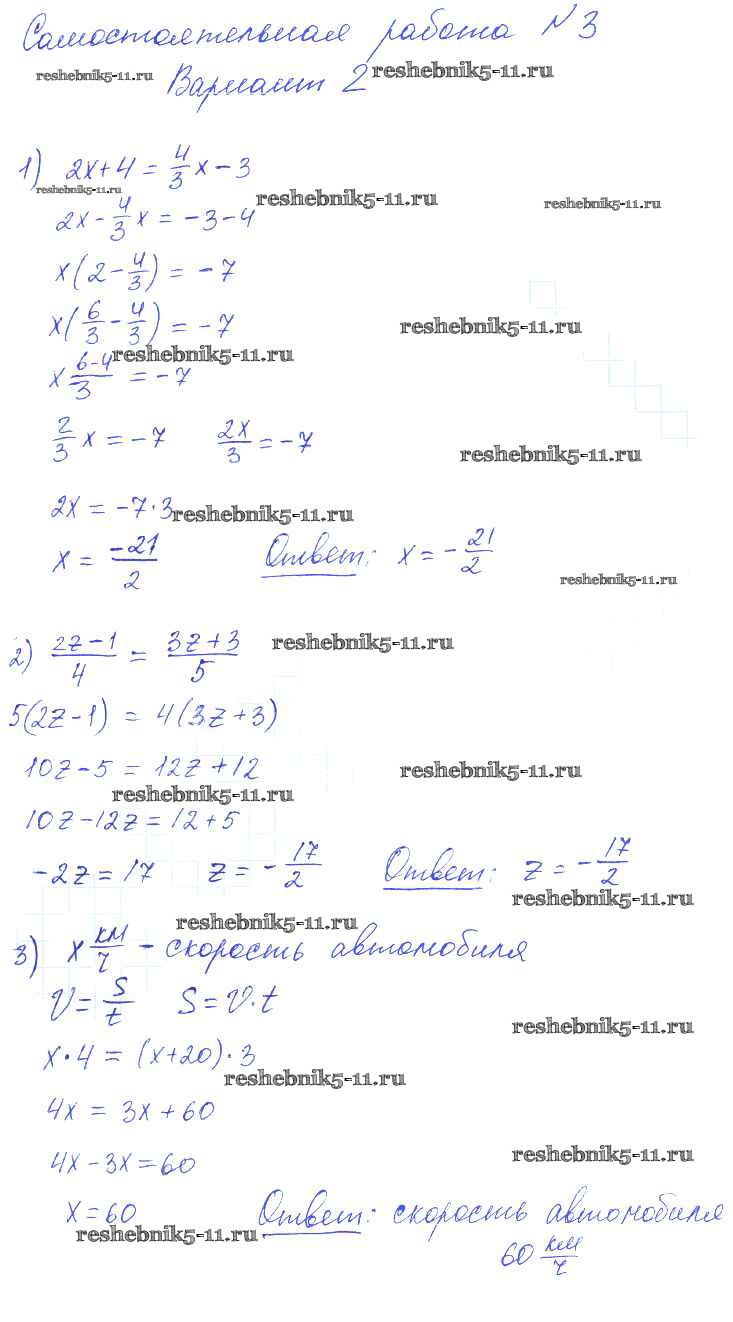 Самостоятельная работа №3
reshebnik5-11.ru
Вариант 2 reshebnik5-11.ru
1) 2x+4 = 4/3 x - 3
reshebnik5-11.ru
2x - 4/3 x = -3-4 reshebnik5-11.ru reshebnik5-11.ru
x(2 - 4/3) = -7
x(6/3 - 4/3) = -7 reshebnik5-11.ru
reshebnik5-11.ru
x (6-4)/3 = -7
2/3 x = -7 2x/3 = -7 reshebnik5-11.ru
2x = -7·3 reshebnik5-11.ru
x = -21/2 Ответ: x = -21/2
reshebnik5-11.ru
2) (2z-1)/4 = (3z+3)/5 reshebnik5-11.ru
5(2z-1) = 4(3z+3)
10z-5 = 12z+12 reshebnik5-11.ru
reshebnik5-11.ru
10z-12z = 12+5
-2z = 17 z = -17/2 Ответ: z = -17/2
reshebnik5-11.ru
reshebnik5-11.ru
3) x км/ч - скорость автомобиля
V = S/t S = V·t
reshebnik5-11.ru
x·4 = (x+20)·3
reshebnik5-11.ru
4x = 3x+60
4x-3x=60 reshebnik5-11.ru
x=60 Ответ: скорость автомобиля
reshebnik5-11.ru
60 км/ч